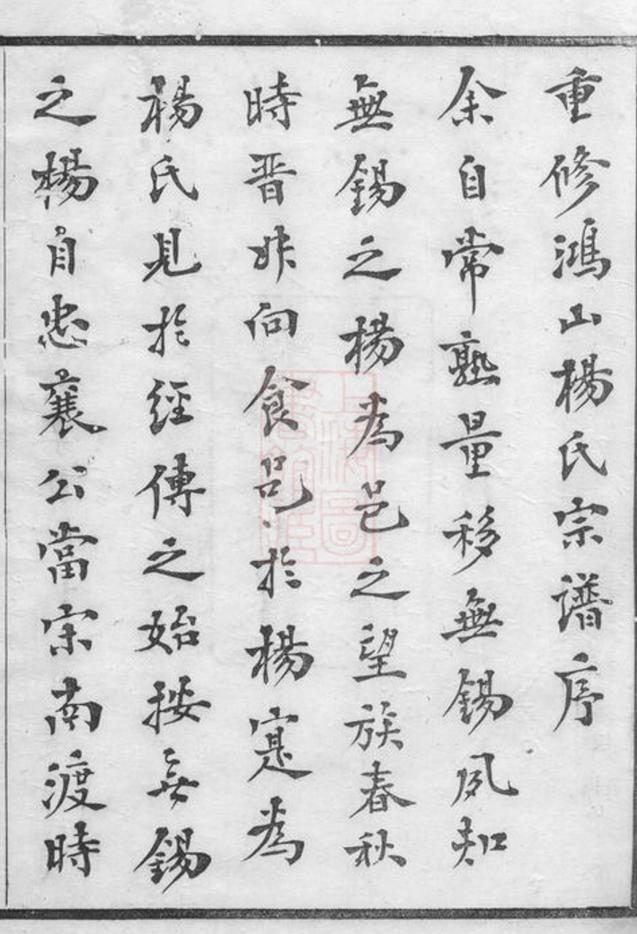 重修鴻山楊氏宗譜序
余自常熟量移無錫夙知
無錫之楊為邑之望族春秋
時晉叔向食邑於楊寔為
楊氏見於經傳之始按無錫
之楊自忠襄公當宋南渡時